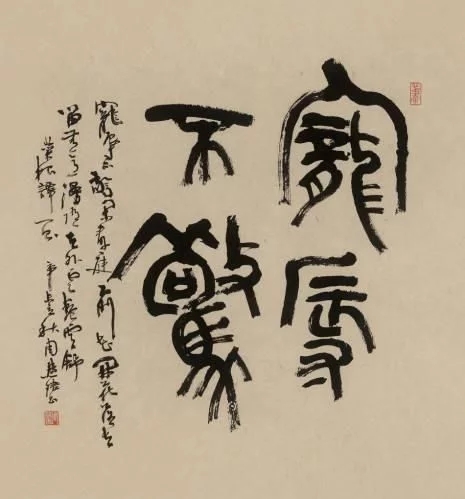 寵辱
不驚
寵辱不驚閑看庭前花開花落去
留無意漫隨天外雲卷雲舒
菜根譚 秋